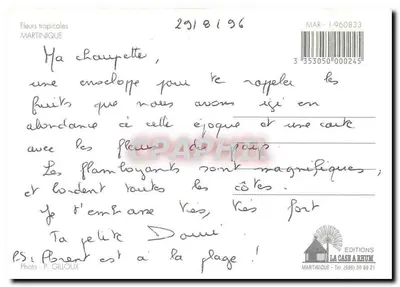 Fleurs tropicales
MARTINIQUE
29/8/96
MAR - I-960833
3 353050 000245
Ma choupette,
une enveloppe pour te rappeler les
fruits que nous avons ici en
abondance à cette époque et une carte
avec les fleurs du pays.
Les flamboyants sont magnifiques,
et bordent toutes les côtes.
Je t'embrasse très, très fort
Ta petite
P.S: Florent est à la plage !
Photo : P. GILLOUX
EDITIONS
LA CASE A RHUM
MARTINIQUE - Tél.